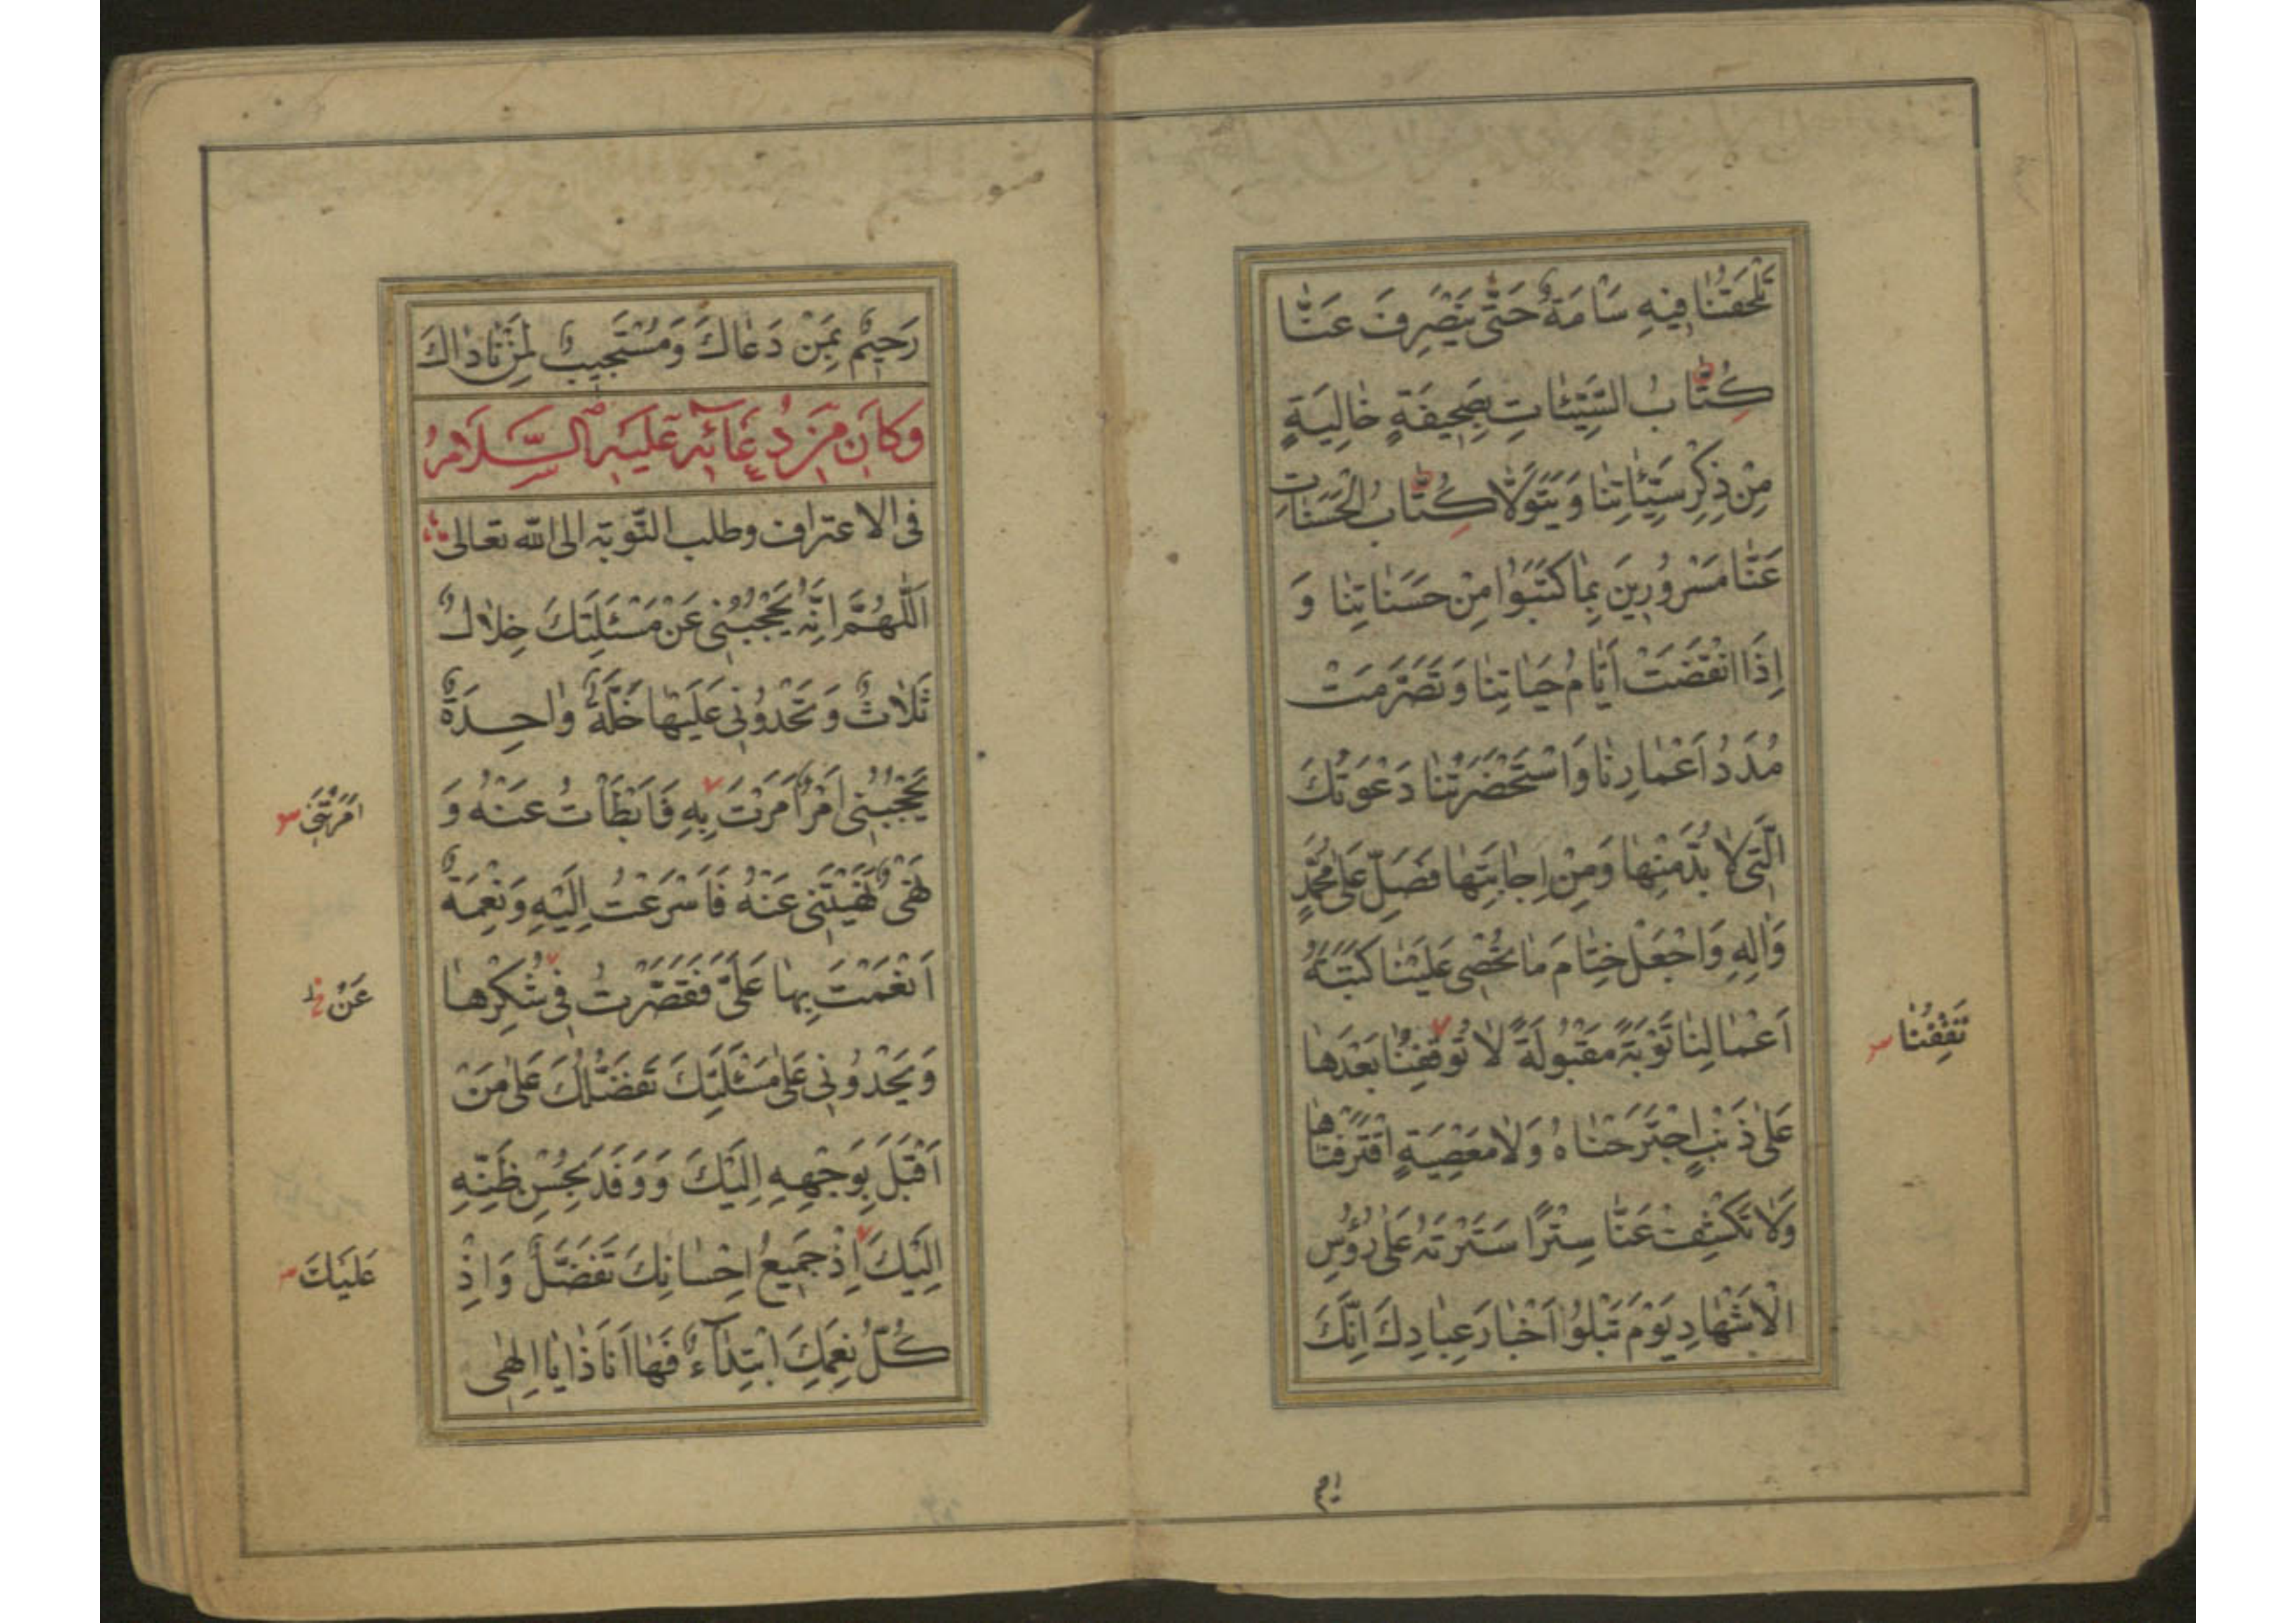 تَلْحَقُنٰا فِيهِ سَاْمَةٌ حَتّٰى يَنْصَرِفَ عَنّٰا
كُتّٰابُ السَّيِّئٰاتِ بِصَحِيفَةٍ خٰالِيَةٍ
مِنْ ذِكْرِ سَيِّئٰاتِنٰا وَ يَتَوَلّٰا كُتّٰابُ الْحَسَنٰاتِ
عَنّٰا مَسْرُورِينَ بِمٰا كَتَبُوا مِنْ حَسَنٰاتِنٰا وَ
اِذَا انْقَضَتْ اَيّٰامُ حَيٰاتِنٰا وَ تَصَرَّمَتْ
مُدَدُ اَعْمٰارِنٰا وَاسْتَحْضَرَتْنٰا دَعْوَتُكَ
الَّتِى لاٰ بُدَّ مِنْهٰا وَمِنْ اِجٰابَتِهٰا فَصَلِّ عَلٰى مُحَمَّدٍ
وَاٰلِهِ وَاجْعَلْ خِتٰامَ مٰا تُحْصِى عَلَيْنٰا كَتَبَةُ
اَعْمٰالِنٰا تَوْبَةً مَقْبُولَةً لاٰ تُوقِفُنٰا بَعْدَهٰا
تَقِفُنٰا
عَلٰى ذَنْبٍ اجْتَرَحْنٰاهُ وَلاٰ مَعْصِيَةٍ اقْتَرَفْنٰاهٰا
وَلاٰ تَكْشِفْ عَنّٰا سِتْرًا سَتَرْتَهُ عَلٰى رُؤُسِ
الْاَشْهٰادِ يَوْمَ تَبْلُوا اَخْبٰارَ عِبٰادِكَ اِنَّكَ
رَحِيمٌ بِمَنْ دَعٰاكَ وَ مُسْتَجِيبٌ لِمَنْ نٰادٰاكَ
وَكَانَ مِنْ دُعَائِهِ عَلَيْهِ السَّلَامُ
فى الاعتراف وطلب التّوبة الى الله تعالى
اَللّٰهُمَّ اِنَّهُ يَحْجُبُنِى عَنْ مَسْئَلَتِكَ خِلاٰلٌ
ثَلاٰثٌ وَ تَحْدُونِى عَلَيْهٰا خَلَّةٌ وٰاحِدَةٌ
يَحْجُبُنِى اَمْرٌ اَمَرْتَ بِهِ فَاَبْطَاْتُ عَنْهُ وَ
اَمَرْتَنِى
نَهْىٌ نَهَيْتَنِى عَنْهُ فَاَسْرَعْتُ اِلَيْهِ وَ نِعْمَةٌ
اَنْعَمْتَ بِهٰا عَلَىَّ فَقَصَّرْتُ فِى شُكْرِهٰا
عَنْ
وَ يَحْدُونِى عَلٰى مَسْئَلَتِكَ تَفَضُّلُكَ عَلٰى مَنْ
اَقْبَلَ بِوَجْهِهِ اِلَيْكَ وَ وَفَدَ بِحُسْنِ ظَنِّهِ
اِلَيْكَ اِذْ جَمِيعُ اِحْسٰانِكَ تَفَضُّلٌ وَ اِذْ
عَلَيْكَ
كُلُّ نِعَمِكَ ابْتِدٰآءٌ فَهٰا اَنَا ذٰا يٰا اِلٰهِى